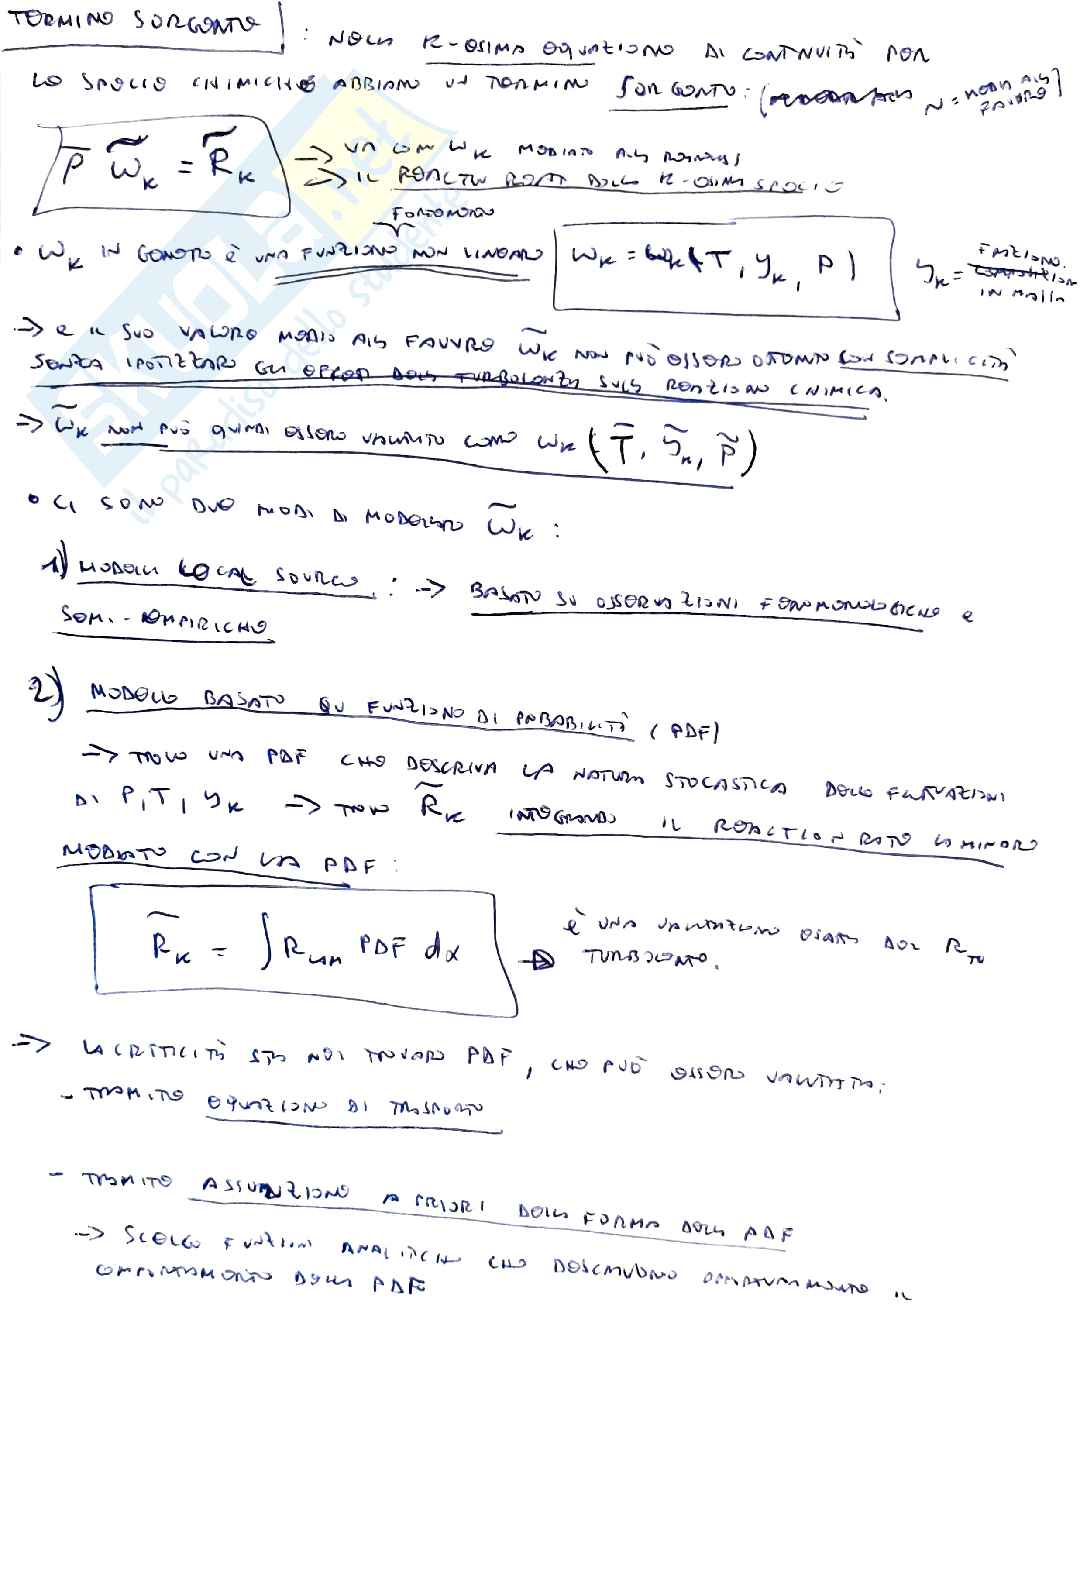 TERMINE SORGENTE : NELLA K-ESIMA EQUAZIONE DI CONTINUITÀ PER
LE SPECIE CHIMICHE ABBIAMO UN TERMINE SORGENTE: ( ~ = MEDIA ALLA FAVRE)
ρ̅ ω̃_K = R̃_K
→ VA CON ω_K MEDIATO ALLA
→ IL REACTION RATE DELLA K-ESIMA SPECIE
FORTEMENTE
• ω_K IN GENERE È UNA FUNZIONE NON LINEARE ω_K = ω_K (T, y_K, P) y_K = FRAZIONE IN MASSA
→ E IL SUO VALORE MEDIO ALLA FAVRE ω̃_K NON PUÒ ESSERE OTTENUTO CON SEMPLICITÀ
SENZA IPOTIZZARE GLI EFFETTI DELLA TURBOLENZA SULLA REAZIONE CHIMICA.
→ ω̃_K NON PUÒ QUINDI ESSERE VALUTATO COME ω_K (T̃, ỹ_K, P̃)
• CI SONO DUE MODI DI MODELLARE ω̃_K :
1) MODELLI LOCAL SOURCE : → BASATO SU OSSERVAZIONI FENOMENOLOGICHE E
SEMI-EMPIRICHE
2) MODELLO BASATO SU FUNZIONE DI PROBABILITÀ (PDF)
→ TROVO UNA PDF CHE DESCRIVA LA NATURA STOCASTICA DELLE FLUTTUAZIONI
DI P, T, y_K → TROVO R̃_K INTEGRANDO IL REACTION RATE LAMINARE
MEDIATO CON LA PDF :
R̃_K = ∫ R_LAM PDF dx
→ È UNA VALUTAZIONE ESATTA DEL R_TU
TURBOLENTO.
⇒ LA CRITICITÀ STA NEL TROVARE PDF, CHE PUÒ ESSERE VALUTATA:
- TRAMITE EQUAZIONE DI TRASPORTO
- TRAMITE ASSUNZIONE A PRIORI DELLA FORMA DELLA PDF
→ SCELGO FUNZIONI ANALITICHE CHE DESCRIVONO IL
COMPORTAMENTO DELLA PDF
SKUOLA.net
il paradiso dello studente